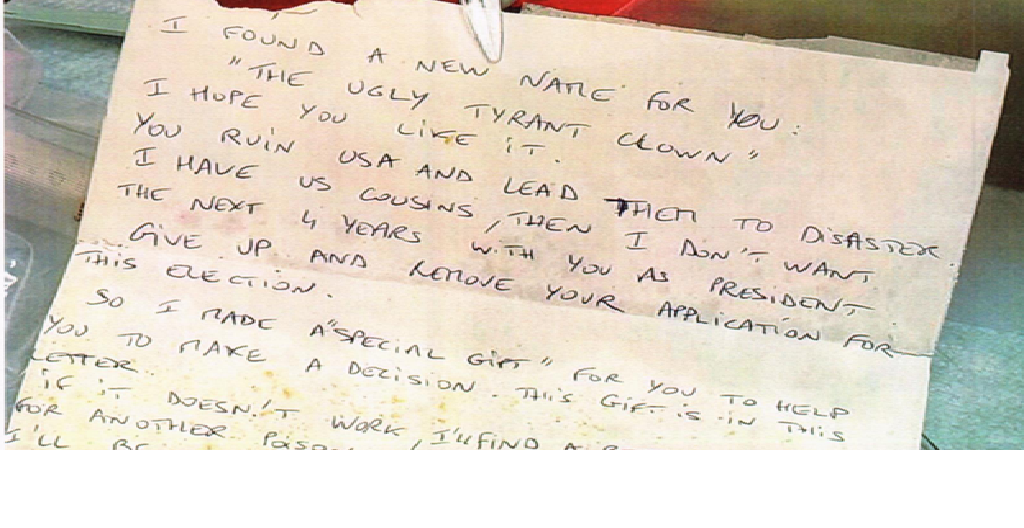 I FOUND A NEW NAME FOR YOU:
"THE UGLY TYRANT CLOWN"
I HOPE YOU LIKE IT.
YOU RUIN USA AND LEAD THEM TO DISASTER.
I HAVE US COUSINS, THEN I DON'T WANT
THE NEXT 4 YEARS WITH YOU AS PRESIDENT.
GIVE UP AND REMOVE YOUR APPLICATION FOR
THIS ELECTION.
SO I MADE A "SPECIAL GIFT" FOR YOU TO HELP
YOU TO MAKE A DECISION. THIS GIFT IS IN THIS
LETTER.
IF IT DOESN'T WORK, I'LL FIND A
FOR ANOTHER
I'LL BE